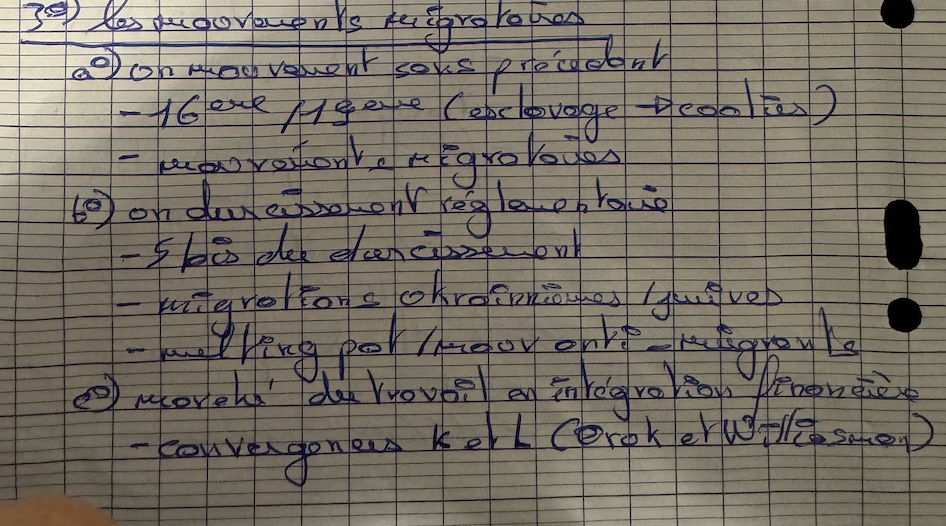 3°) les mouvements migratoires
a°) un mouvement sans précédent
- 16ème / 19ème (esclavage → coolies)
- mouvements migratoires
b°) un durcissement réglementaire
- 5 bis du durcissement
- migrations ukrainiennes / juives
- melting pot / mouv anti-migrants
c°) marché du travail en intégration financière
- convergences K et L